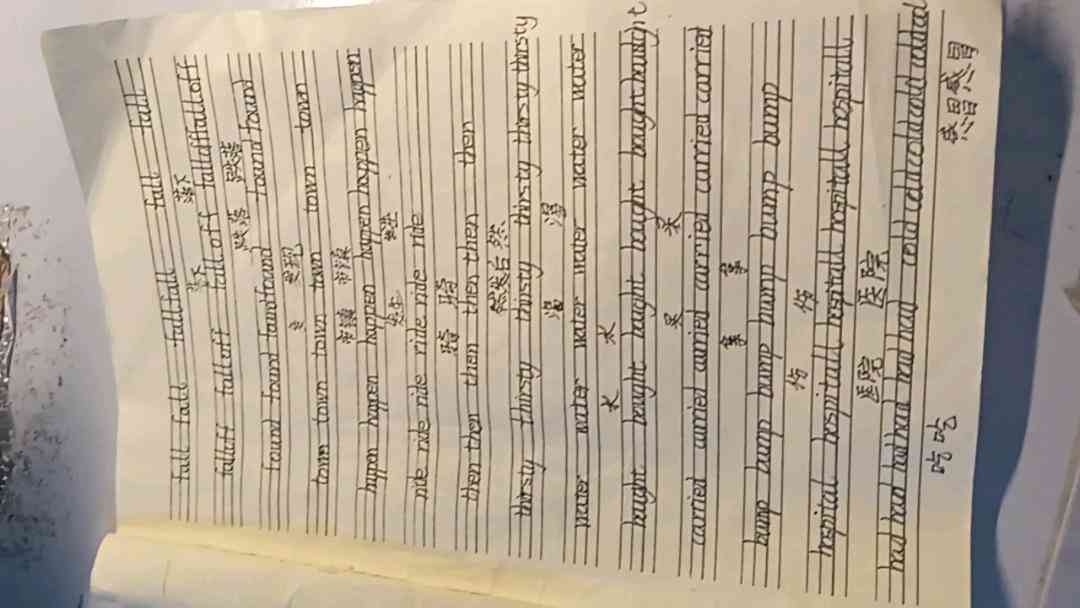 fall fall fall fall fall fall
落下 落下
fall off fall off fall off fall off fall off
跌落 跌落
found found found found found found
发现
town town town town town town
市镇 市镇
happen happen happen happen happen happen happen
发生 发生
ride ride ride ride ride ride ride
骑 骑
then then then then then then
然后 然
thirsty thirsty thirsty thirsty thirsty thirsty
渴 渴
water water water water water water
水 水
bought bought bought bought bought bought
买 买
carried carried carried carried carried carried
拿 拿
bump bump bump bump bump bump
伤 伤
hospital hospitall hospitall hospitall hospitall
医院 医院
had had had had had had cold cold cold cold cold cold
感冒 感冒